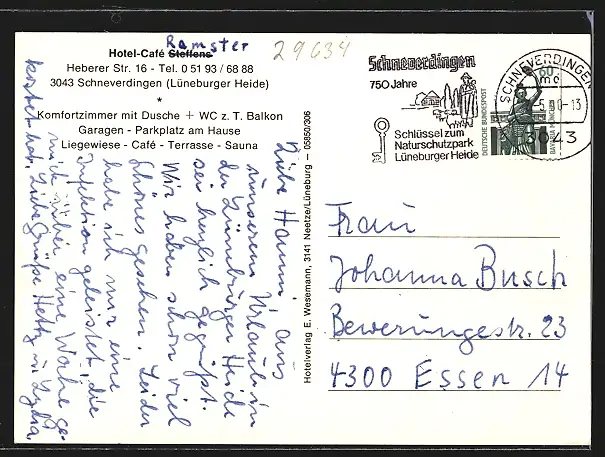 Ramster
Hotel-Café Steffens
Heberer Str. 16 - Tel. 0 51 93 / 68 88
3043 Schneverdingen (Lüneburger Heide)
*
Komfortzimmer mit Dusche + WC z. T. Balkon
Garagen - Parkplatz am Hause
Liegewiese - Café - Terrasse - Sauna
29634
Liebe Hanni, aus
unserem Urlaub in
der Lüneburger Heide
sei herzlich gegrüßt.
Wir haben schon viel
Schönes gesehen. Leider
habe ich mir eine
Infektion geleistet, die
mich über eine Woche ge-
kostet hat. Liebe Grüße Hetty u. Lydia
Hotelverlag E. Wesemann, 3141 Neetze/Lüneburg — 05850/306
Schneverdingen
750 Jahre
Schlüssel zum
Naturschutzpark
Lüneburger Heide
SCHNEVERDINGEN
mc
3043
60
DEUTSCHE BUNDESPOST
BAVARIA MÜNCHEN
Frau
Johanna Busch
Bewerungestr. 23
4300 Essen 14